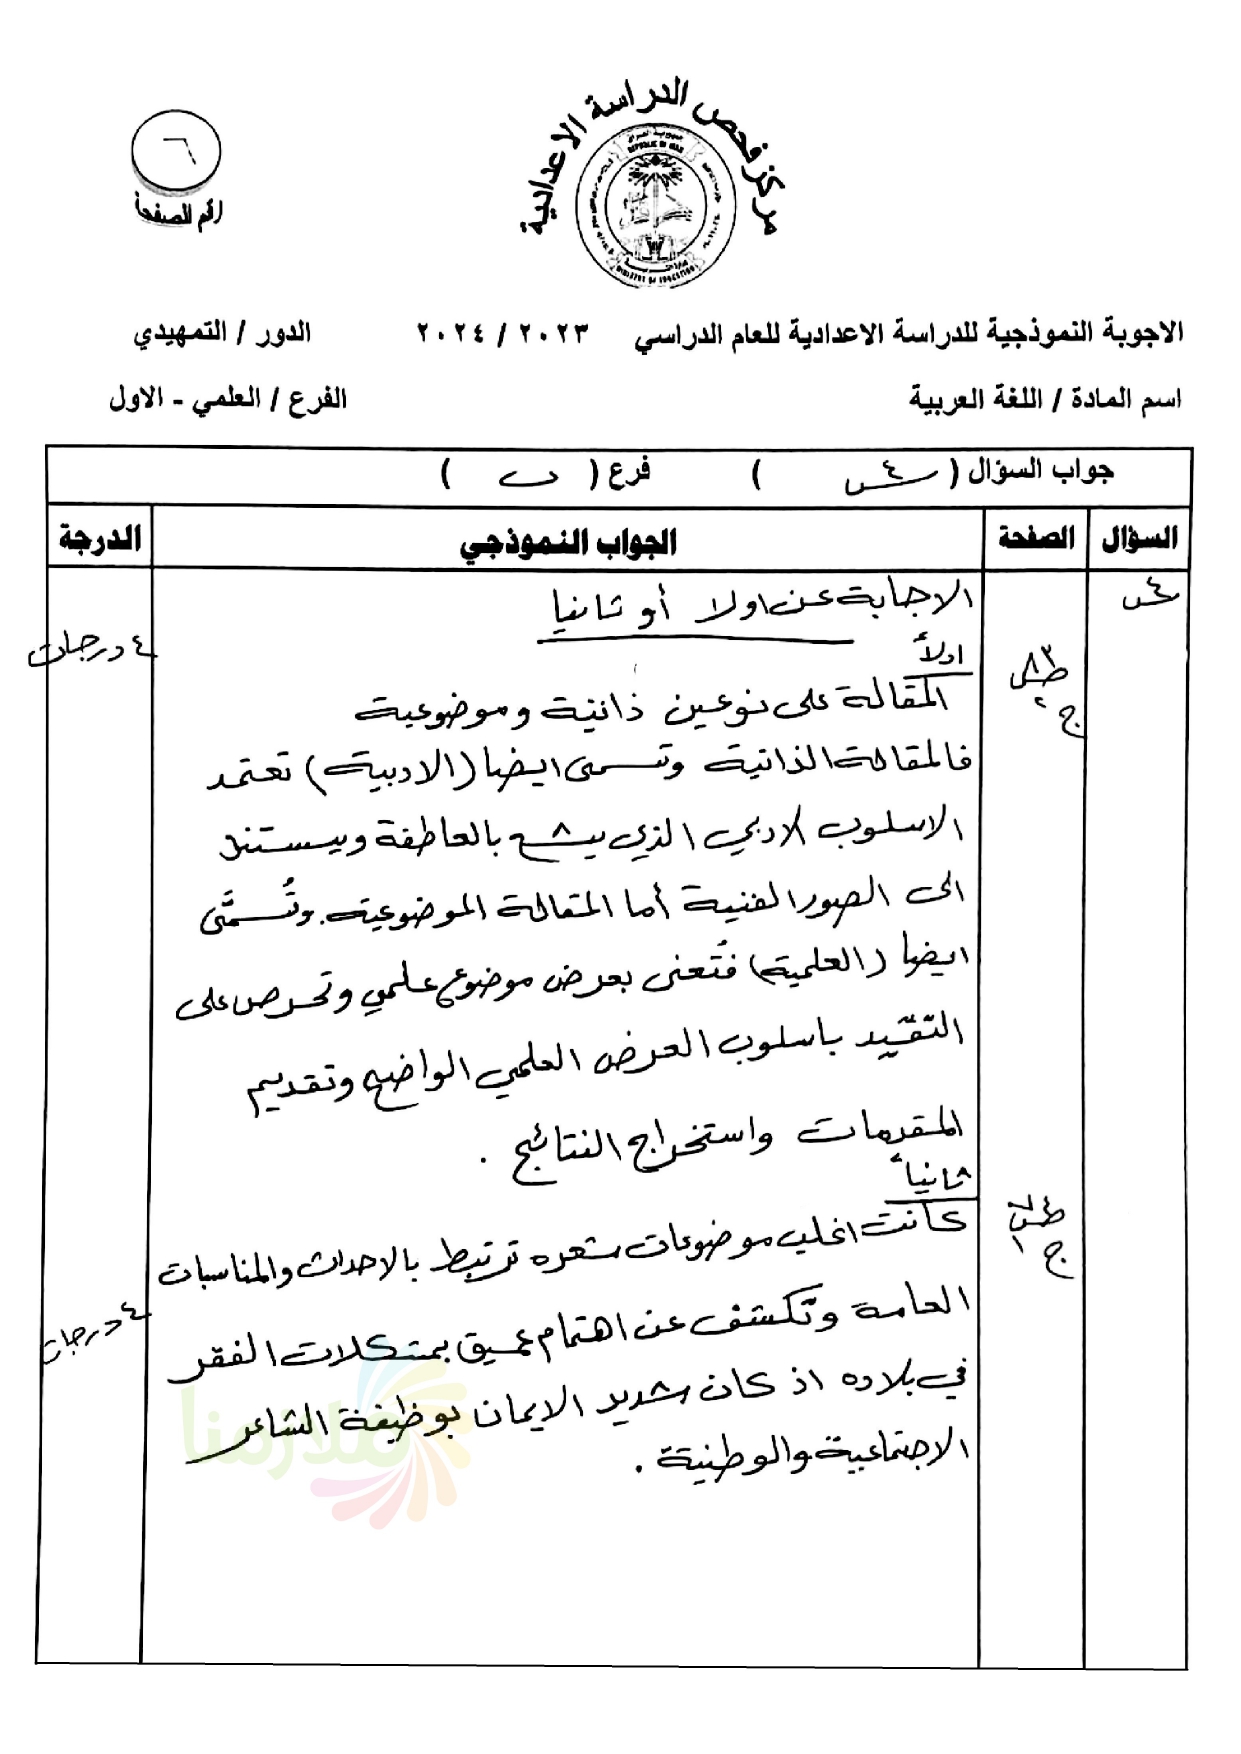 مركز فحص الدراسة الاعدادية
٦
رقم الصفحة
الاجوبة النموذجية للدراسة الاعدادية للعام الدراسي ٢٠٢٣ / ٢٠٢٤ الدور / التمهيدي
اسم المادة / اللغة العربية الفرع / العلمي - الاول
جواب السؤال ( س٤ ) فرع ( ب )
السؤال الصفحة الجواب النموذجي الدرجة
س٤ الاجابة عن اولا أو ثانيا
اولاً
ط ص٨٣ ج٢ المقالة على نوعين ذاتية وموضوعية ٤ درجات
فالمقالة الذاتية وتسمى ايضا (الادبية) تعتمد
الاسلوب الادبي الذي يشع بالعاطفة ويستند
الى الصور الفنية أما المقالة الموضوعية. وتُسمَّى
ايضا (العلمية) فتُعنى بعرض موضوع علمي وتحرص على
التقيّد باسلوب العرض العلمي الواضح وتقديم
المقدمات واستخراج النتائج .
ثانياً
كانت اغلب موضوعات شعره ترتبط بالاحداث والمناسبات
العامة وتكشف عن اهتمام عميق بمشكلات الفقر ٤ درجات
في بلاده اذ كان شديد الايمان بوظيفة الشاعر
الاجتماعية والوطنية .
ملازمنا